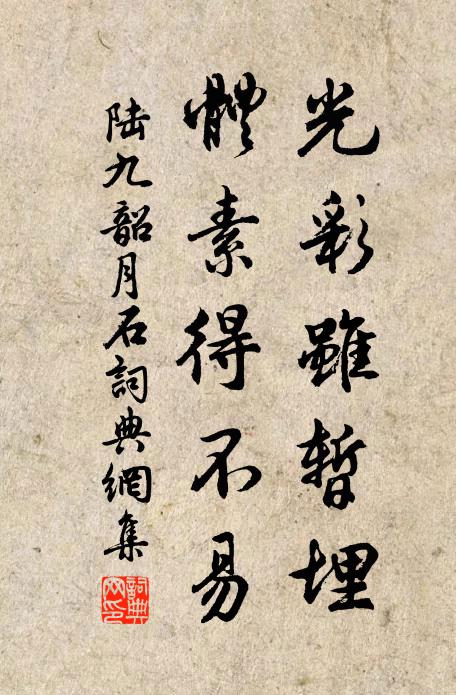 光彩雖暫埋
體素得不易
陸九韶月石詞典網集
詞典网印